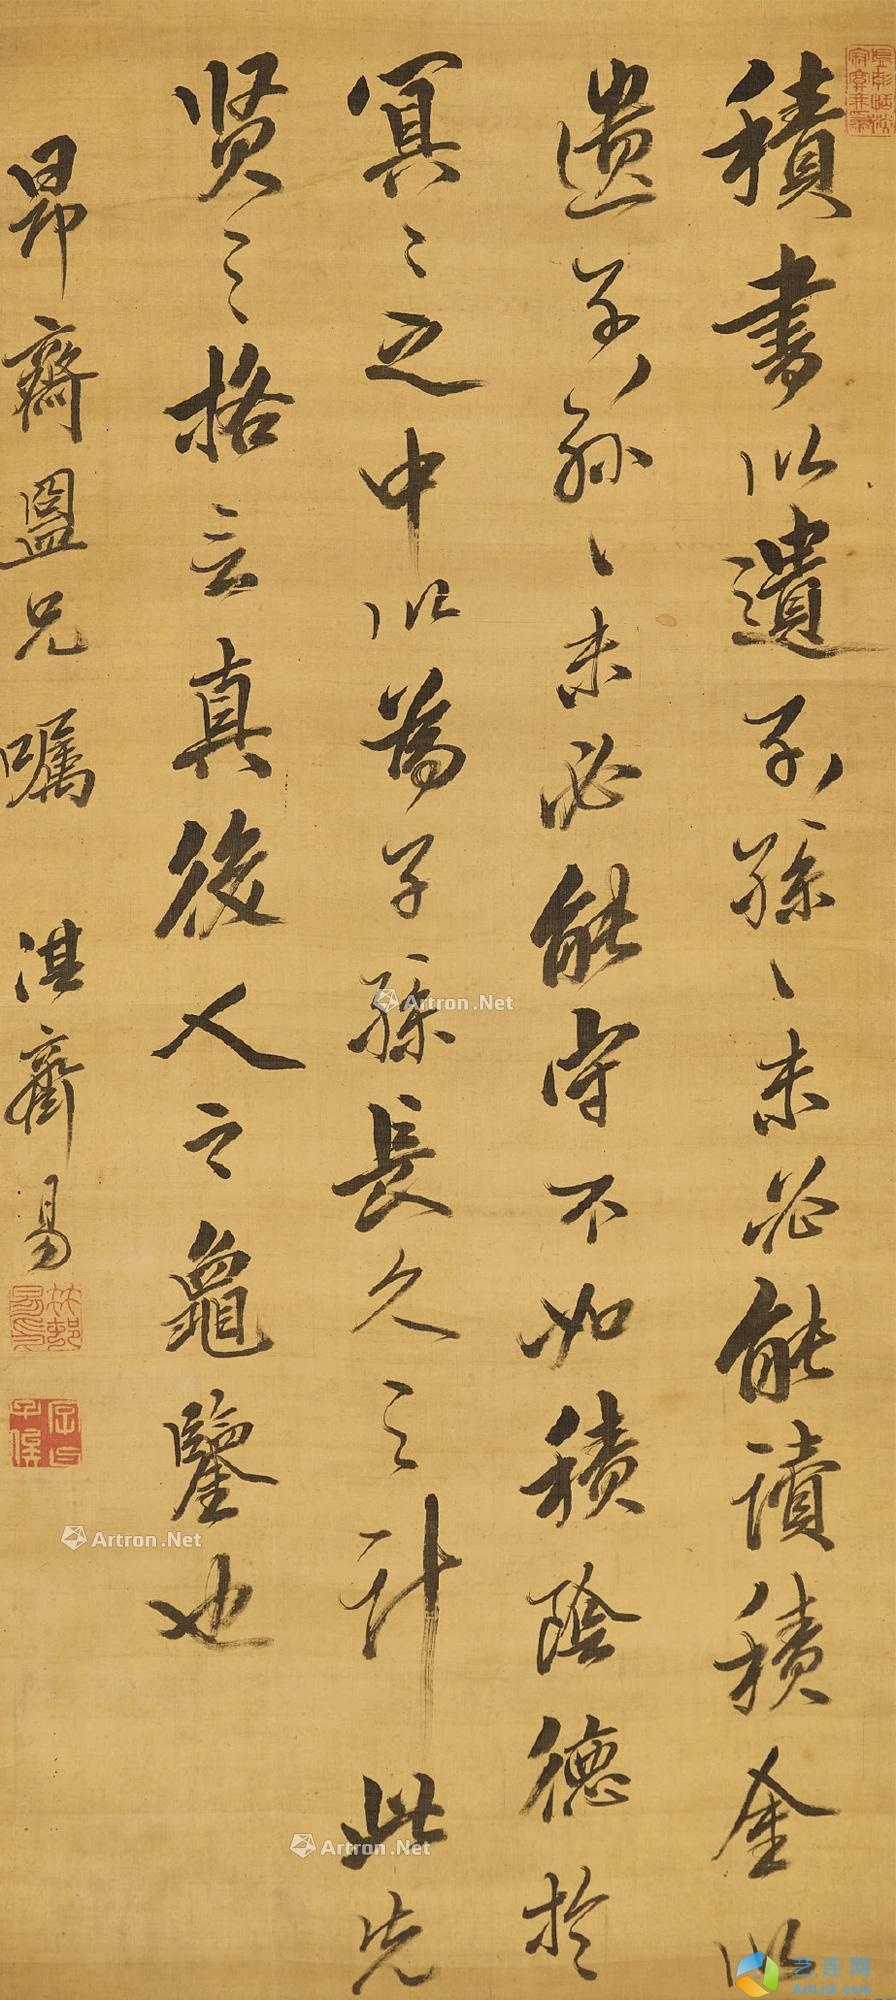 積書以遺子孫〻未必能讀積金以
遺子孫〻未必能守不如積陰德於
冥〻之中以為子孫長久之計此先
賢之格言真後人之龜鑒也
昂齋盟兄嘱 淇齋易
Artron.Net
Artron.Net
Artron.Net
艺连网
ArtLnk.Com